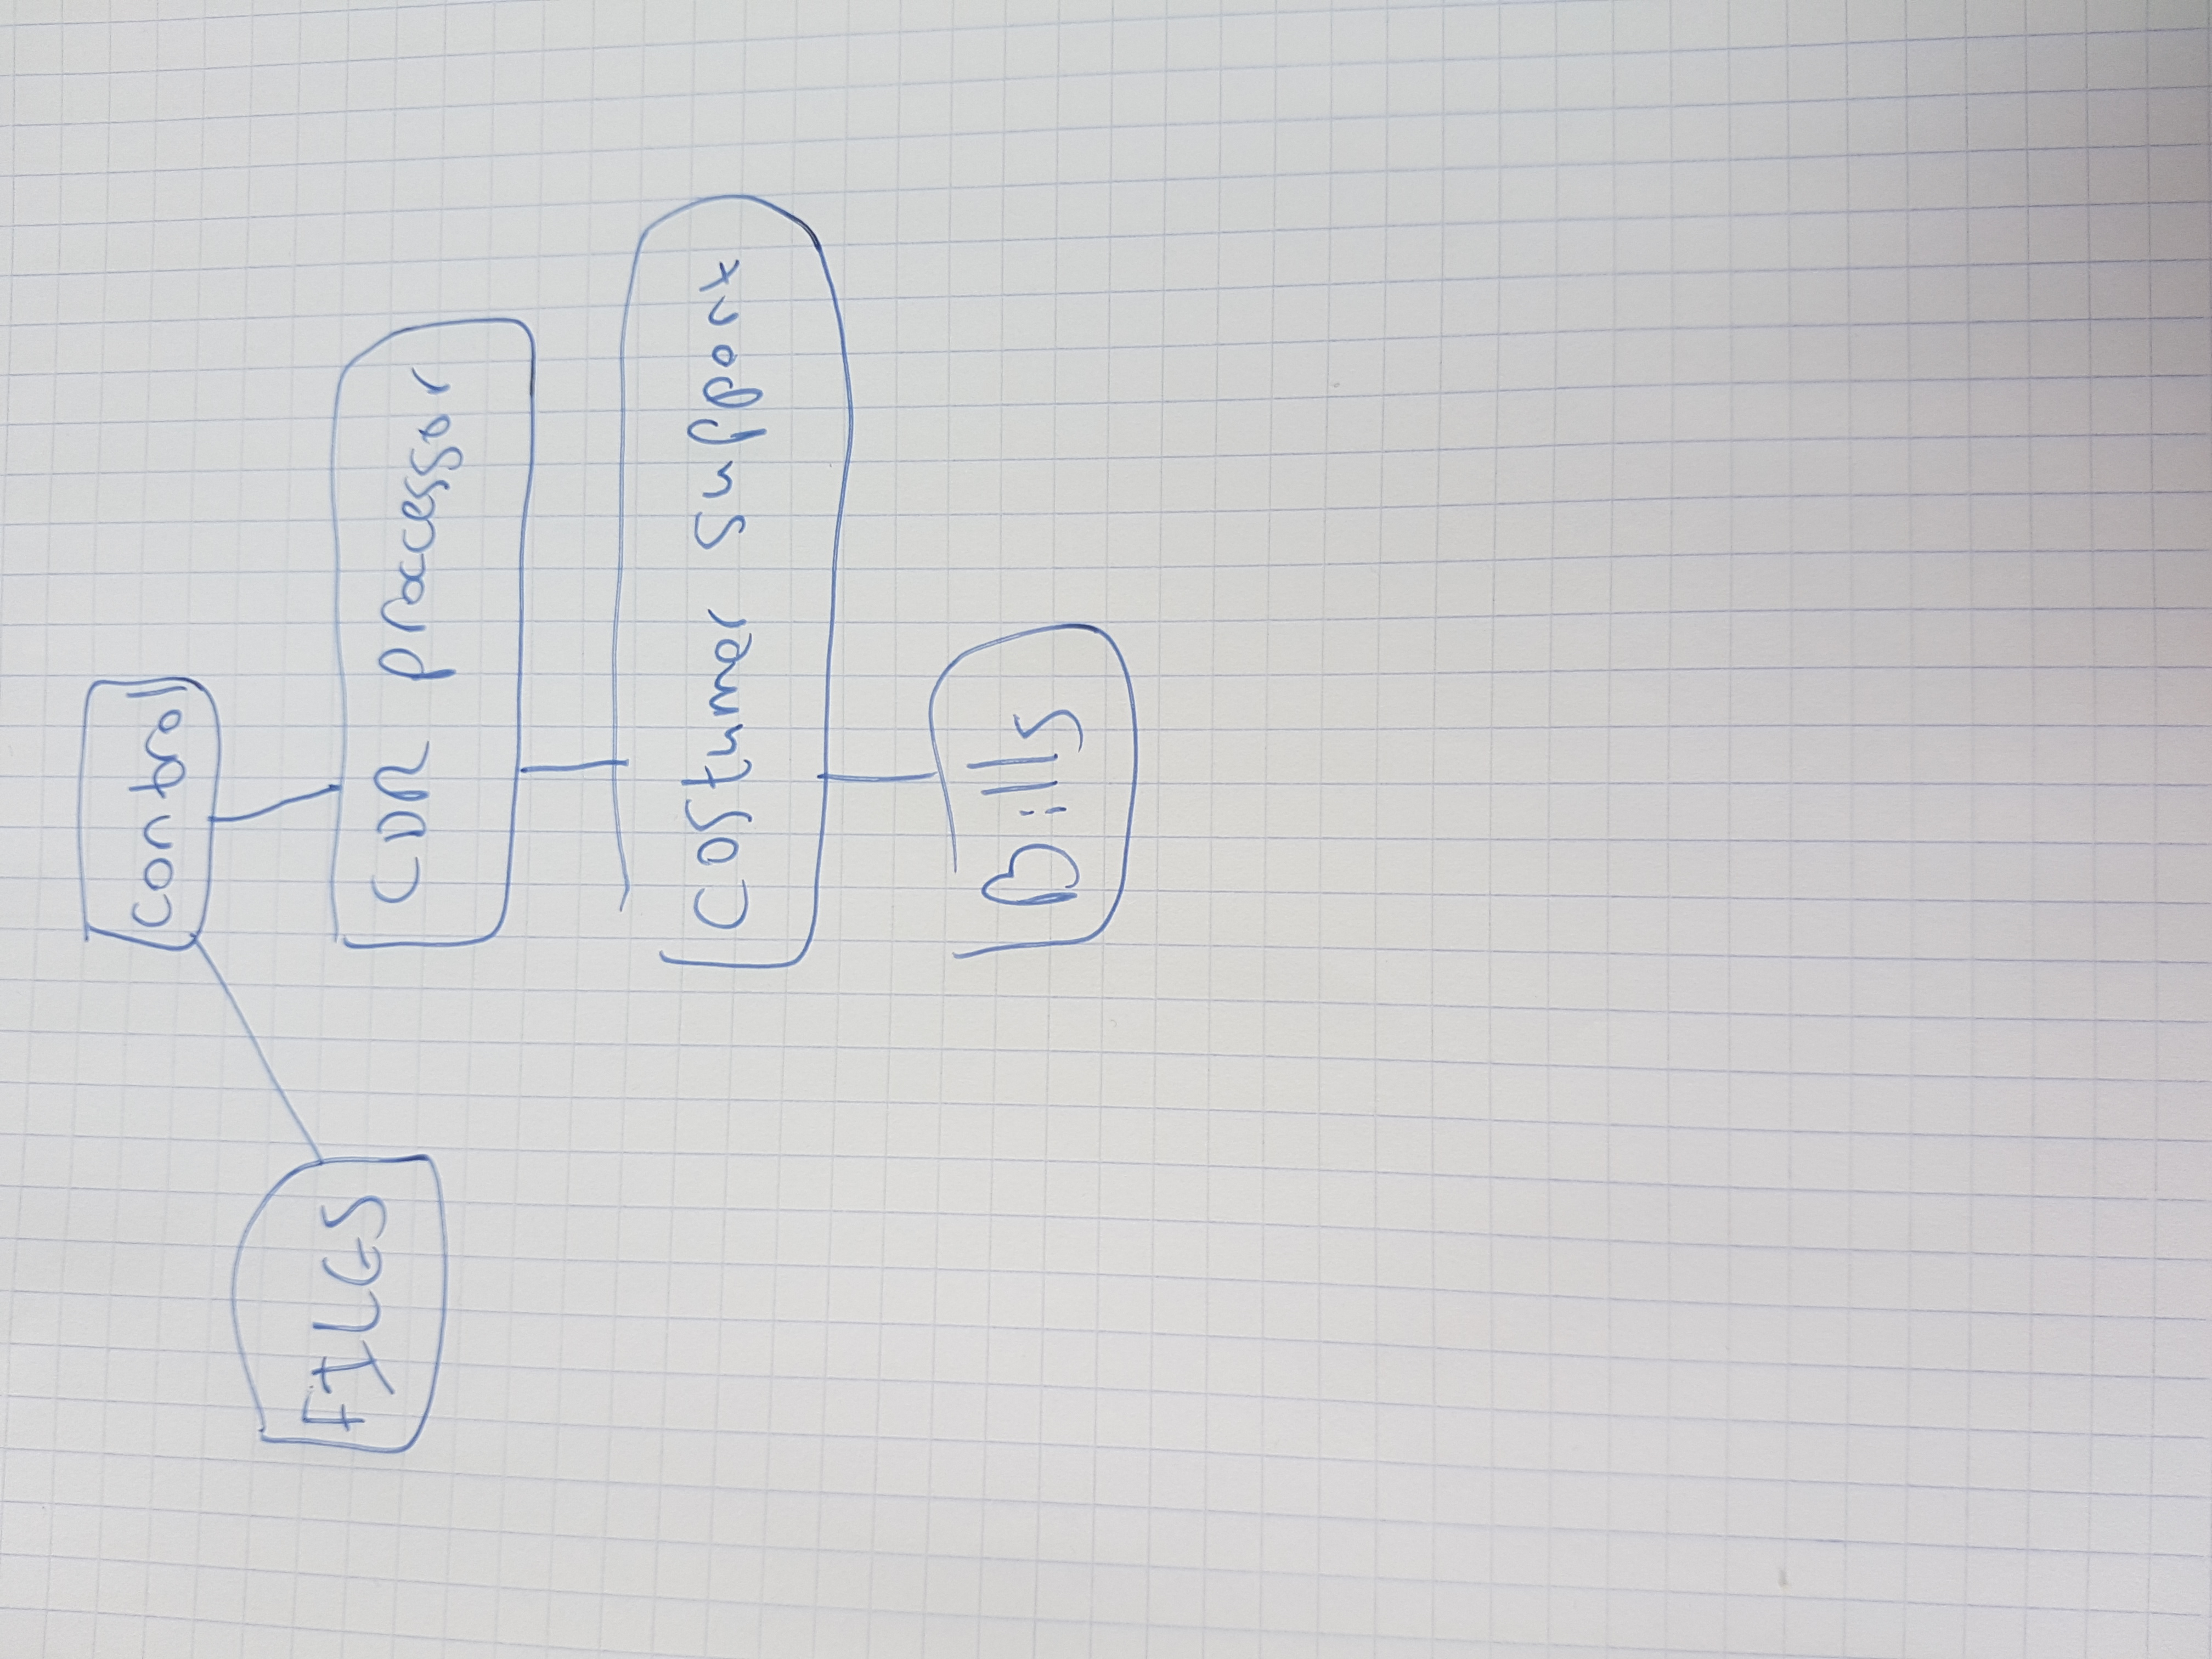 control
FILES
CDR proccessor
costumer support
Bills